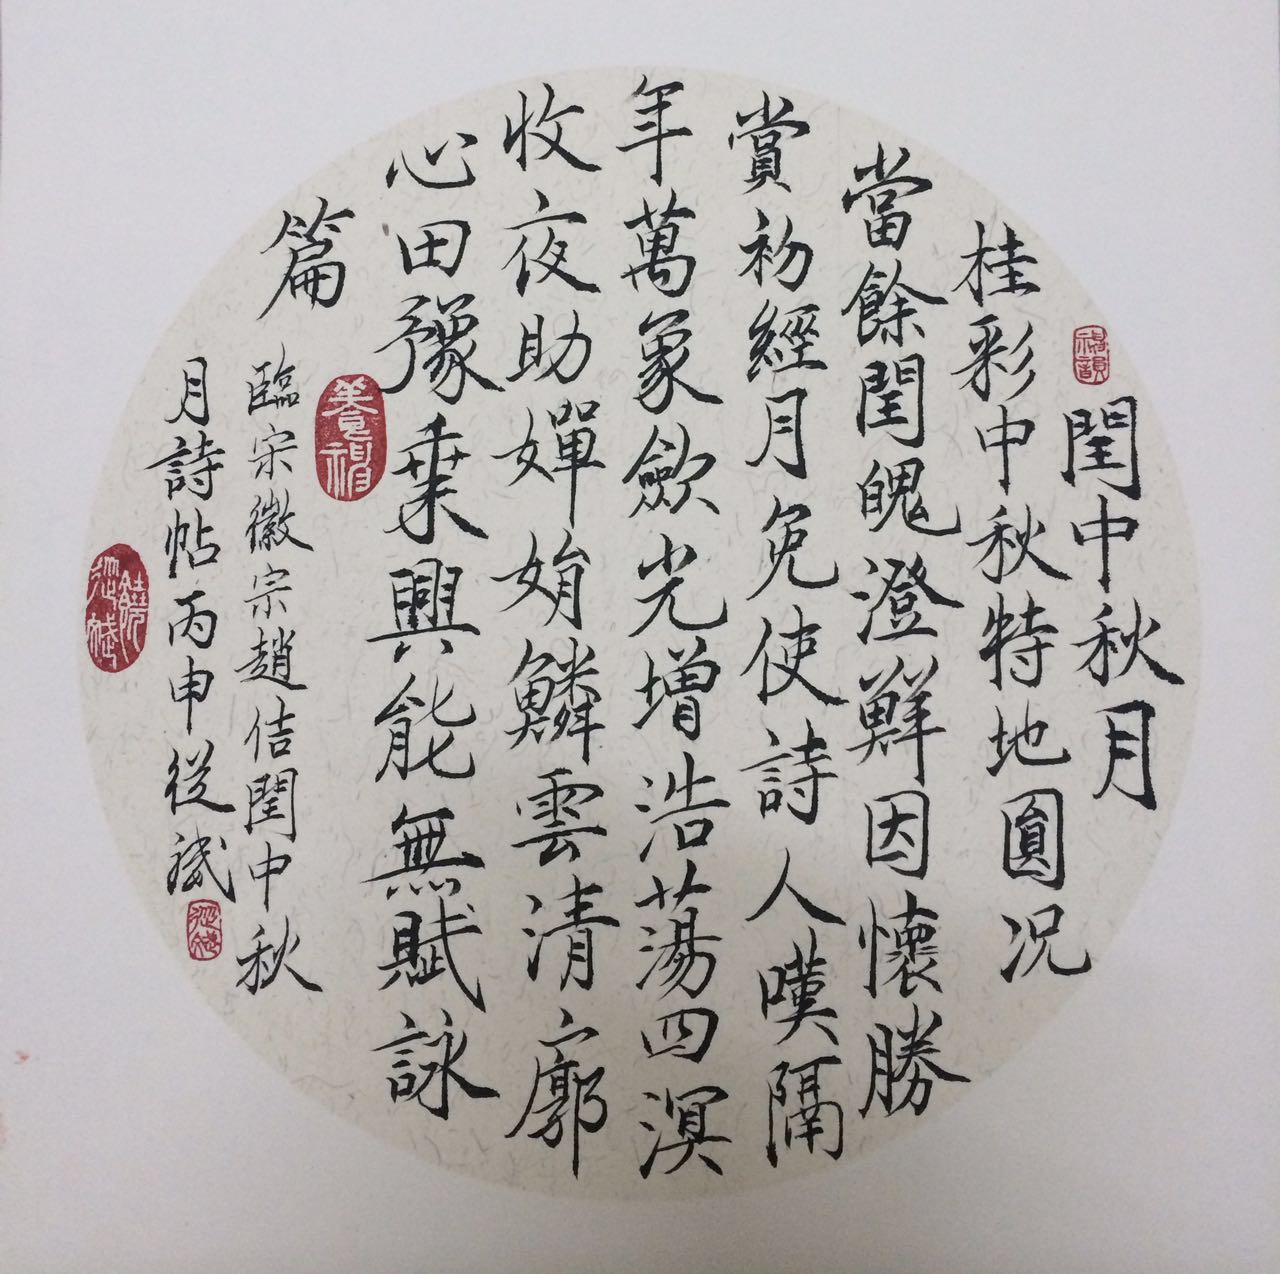 閏中秋月
桂彩中秋特地圓况
當餘閏魄澄鮮因懷勝
賞初經月免使詩人嘆隔
年萬象歛光增浩蕩四溟
收夜助嬋娟鱗雲清廓
心田豫乗興能無賦詠
篇
臨宋徽宗趙佶閏中秋
月詩帖丙申從斌